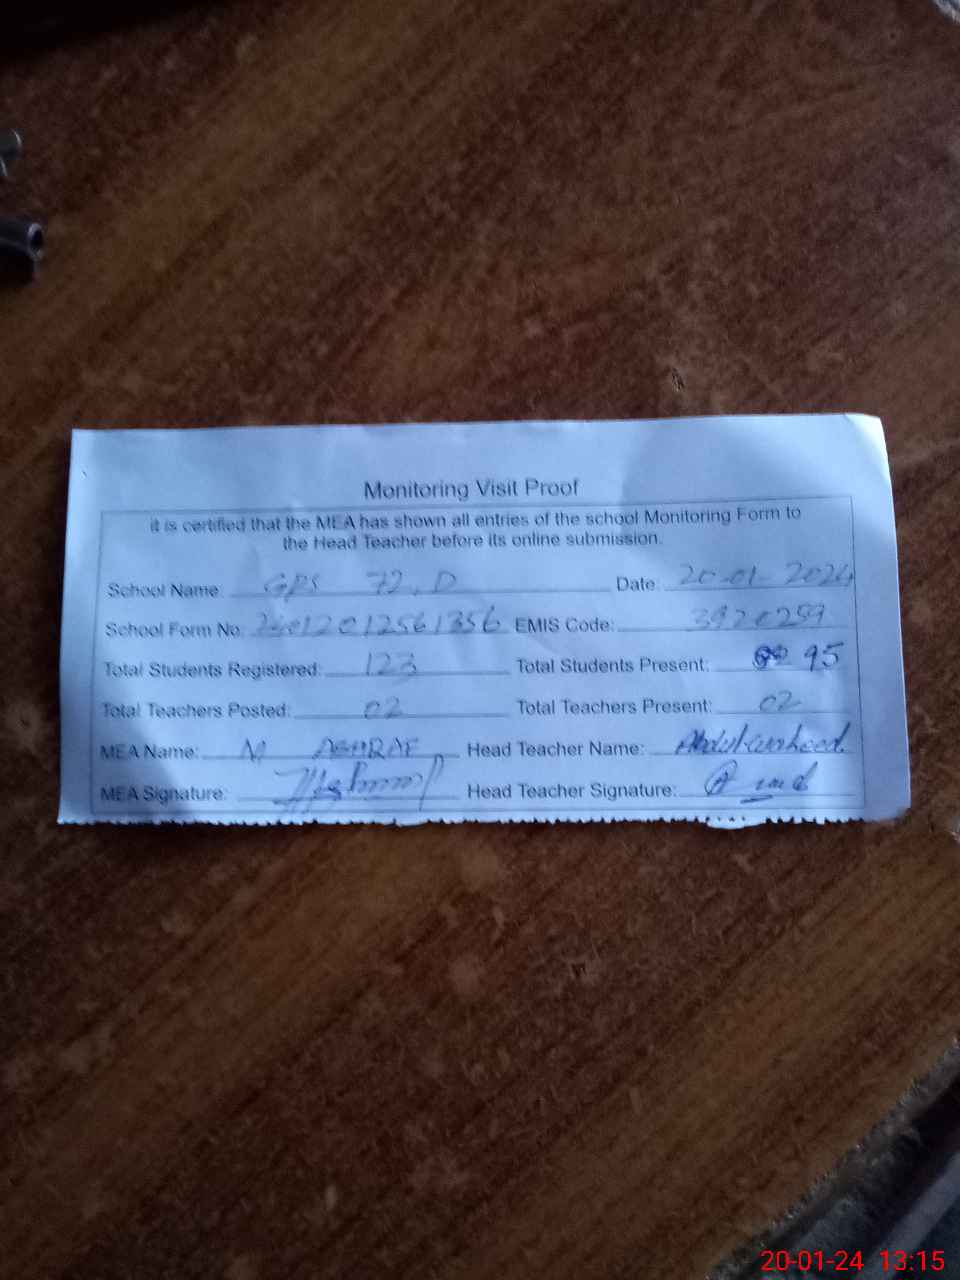 Monitoring Visit Proof
it is certified that the MEA has shown all entries of the school Monitoring Form to
the Head Teacher before its online submission.
School Name GPS 72, D Date: 20-01-2024
School Form No: EMIS Code: 3920259
Total Students Registered: 123 Total Students Present: 95
Total Teachers Posted: 02 Total Teachers Present: 02
MEA Name: M ASHRAF Head Teacher Name: Abdul waheed
MEA Signature: Head Teacher Signature:
20-01-24 13:15